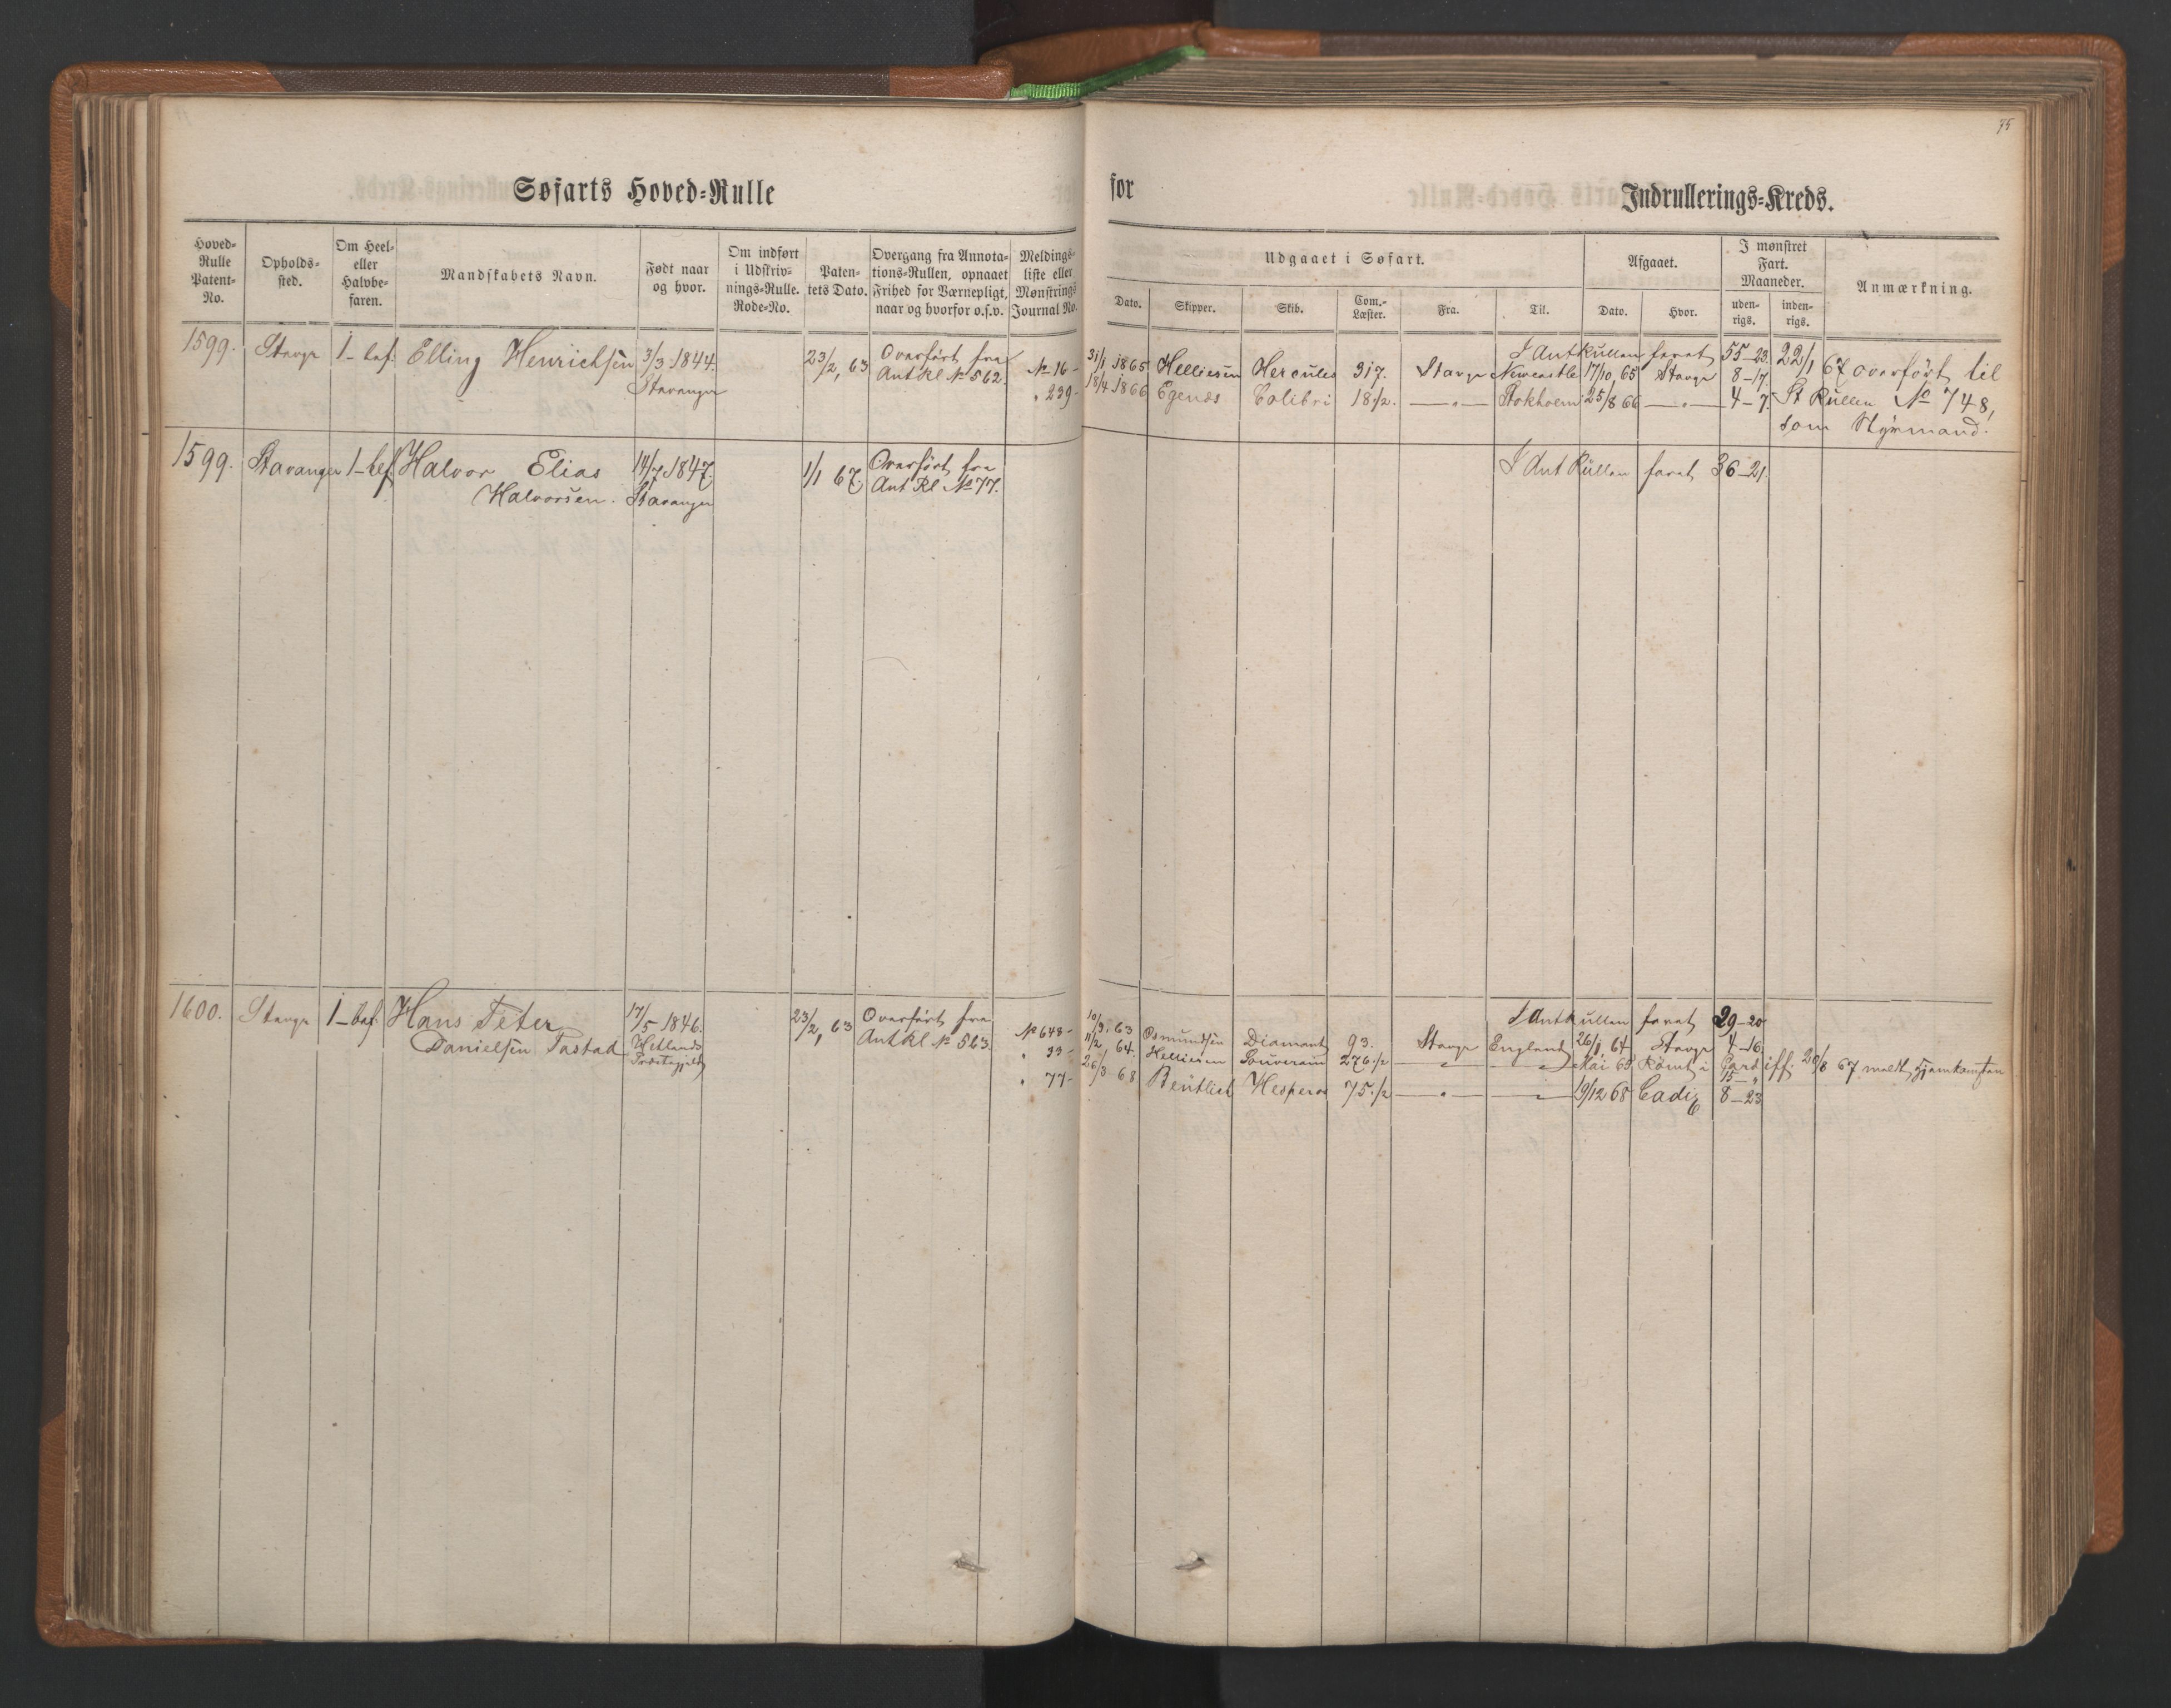 75
Søfarts Hoved-Rulle for Indrullerings-Kreds.
Hoved-Rulle Patent-No.
Opholds-sted.
Om Heel- eller Halvbe-faren.
Mandskabets Navn.
Født naar og hvor.
Om indført i Udskriv-nings-Rulle. Rode-No.
Paten-tets Dato.
Overgang fra Annota-tions-Rullen, opnaaet Frihed for Værnepligt, naar og hvorfor o.s.v.
Meldings-liste eller Mønstrings Journal No.
Udgaaet i Søfart.
Dato.
Skipper.
Skib.
Com.-Læster.
Fra.
Til.
Afgaaet.
Dato.
Hvor.
I mønstret Fart. Maaneder.
uden-rigs.
inden-rigs.
Anmærkning.
1599. Stavgr 1-bef. Elling Henrichsen 3/3 1844. 23/2, 63 Overført fra I Antkullen faret 55-23. 22/1 67 overført til
Stavanger Ant Rl No 562. No 16- 31/1 1865 Helliesen Hercules 317. Stavgr Newcastle 17/10, 65 Stavgr 8-17. St Rullen No 748,
" 239- 18/4 1866 Egenæs Colibri 18 1/2. —"— Stokholm 25/8 66 —"— 4-7. som Styrmand.
1599. Stavanger 1-bef. Halvor Elias 14/7 1847. 1/1 67. Overført fra I Ant Rullen faret 36-21.
Halvorsen. Stavanger Ant Rl No 77.
1600. Stavgr 1-bef. Hans Peter 17/5 1846. 23/2, 63 Overført fra I Antkullen faret 29-20
Danielsen Tastad Hetlands Ant Rl No 563. No 648- 10/9. 63 Osmundsen Diamant 93. Stavgr England 26/1 64 Stavgr 4-16.
Præstegjeld " 33- 11/2 64. Helliesen Souverain 276 1/2 —"— —"— Mai 65 Rømt i Cardiff. 15-" 20/8 67 meldt hjemkomsten
" 77- 26/3 68 Bentlieb Hesperos 75 1/2 —"— —"— 19/12 68 Cadiz 8-23